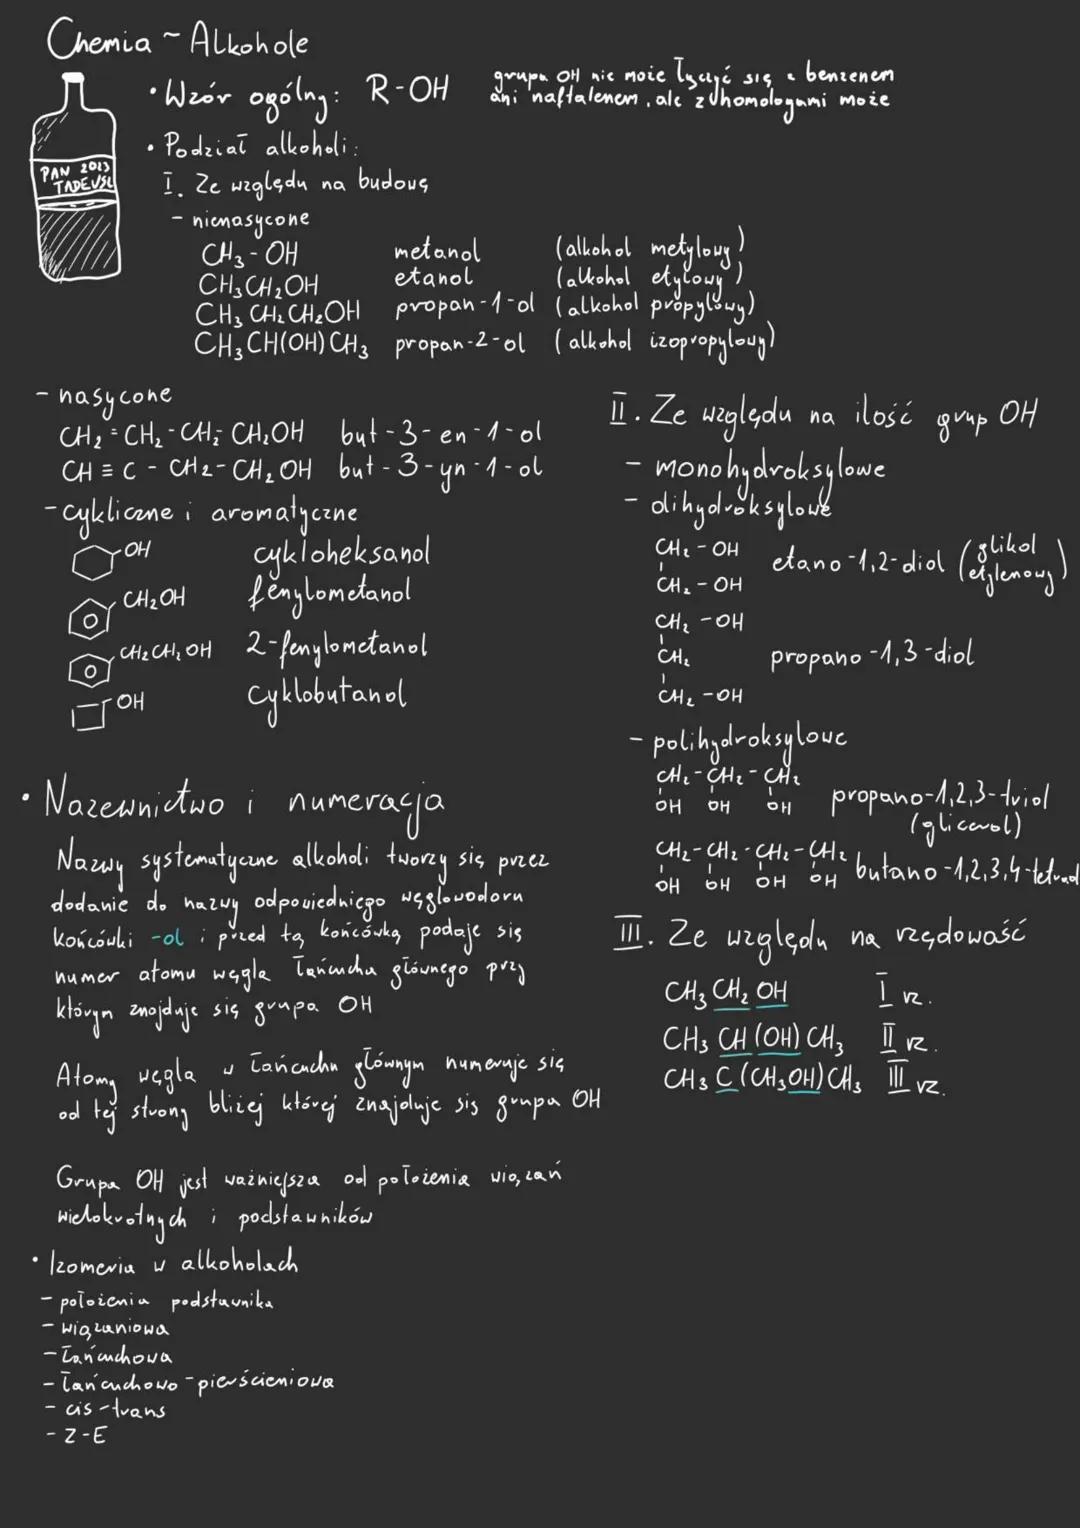 Chemia ~ Alkohole
PAN 2023
TADEUSZ
• Wzór ogólny: R-OH
grupa OH nie może łączyć się z benzenem
ani naftalenem, ale z homologami może
• Podział alkoholi:
I. Ze względu na budowę
- nienasycone
CH₃-OH metanol (alkohol metylowy)
CH₃CH₂OH etanol (alkohol etylowy)
CH₃CH₂CH₂OH propan-1-ol (alkohol propylowy)
CH₃CH(OH)CH₃ propan-2-ol (alkohol izopropylowy)
- nasycone
CH₂=CH₂-CH₂-CH₂OH but-3-en-1-ol
CH≡C-CH₂-CH₂OH but-3-yn-1-ol
- cykliczne i aromatyczne
OH cykloheksanol
CH₂OH fenylometanol
CH₂CH₂OH 2-fenylometanol
OH cyklobutanol
• Nazewnictwo i numeracja
Nazwy systematyczne alkoholi tworzy się przez
dodanie do nazwy odpowiedniego węglowodoru
końcówki -ol i przed tą końcówką podaje się
numer atomu węgla łańcucha głównego przy
którym znajduje się grupa OH
Atomy węgla w łańcuchu głównym numeruje się
od tej strony bliżej której znajduje się grupa OH
Grupa OH jest ważniejsza od położenia wiązań
wielokrotnych i podstawników
• Izomeria w alkoholach
- położenia podstawnika
- wiązaniowa
- łańcuchowa
- łańcuchowo-pierścieniowa
- cis-trans
- Z-E
II. Ze względu na ilość grup OH
- monohydroksylowe
- dihydroksylowe
CH₂-OH
CH₂-OH
etano-1,2-diol (glikol etylenowy)
CH₂-OH
CH₂
CH₂-OH
propano-1,3-diol
- polihydroksylowe
CH₂-CH₂-CH₂
OH OH OH
propano-1,2,3-triol
(glicerol)
CH₂-CH₂-CH₂-CH₂
OH OH OH OH
butano-1,2,3,4-tetraol
III. Ze względu na rzędowość
CH₃CH₂OH I rz.
CH₃CH(OH)CH₃ II rz.
CH₃C(CH₃OH)CH₃ III rz.